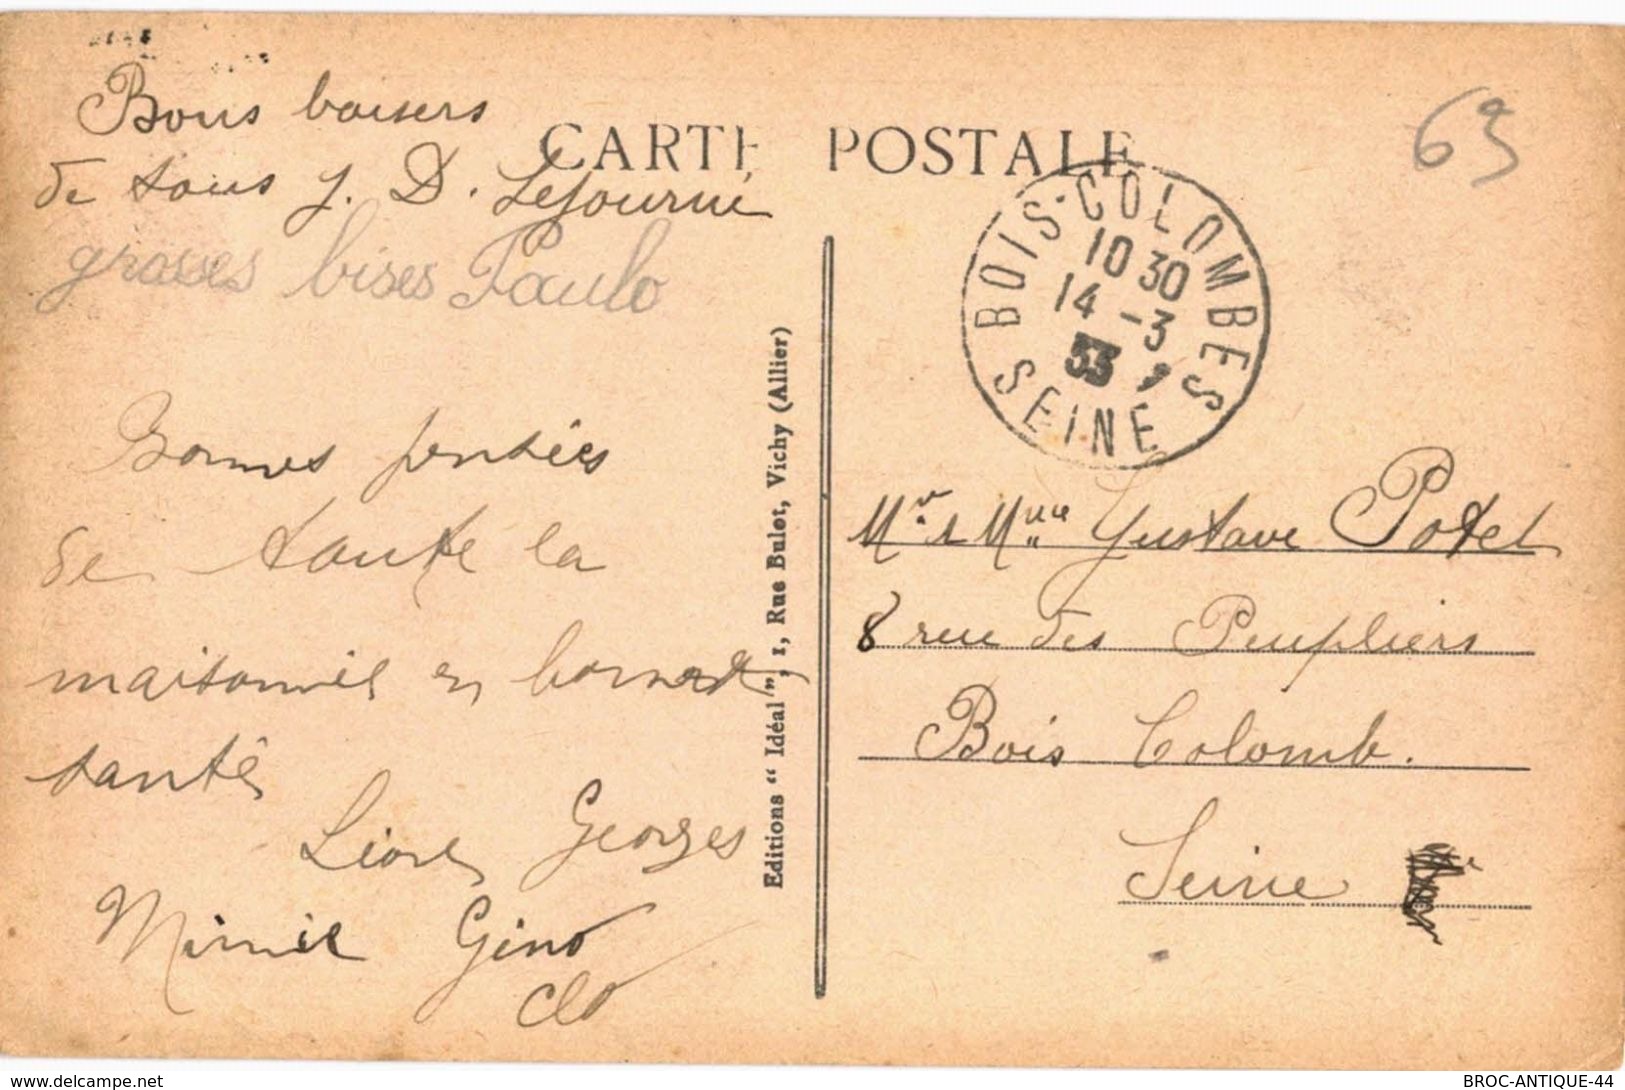 CARTE POSTALE
63
Bons baisers
de tous J. D. Lejourné
grosses bises Paulo
Bonnes pensées
de toute la
maisonnée en bonne
santé
Georges
Mimie Gino
Clo
Editions “ Idéal ”, 1, Rue Bulot, Vichy (Allier)
BOIS-COLOMBES
10 30
14 -3
33
SEINE
Mr & Mme Gustave Potel
8 rue des Peupliers
Bois Colomb.
Seine
delcampe.net
BROC-ANTIQUE-44